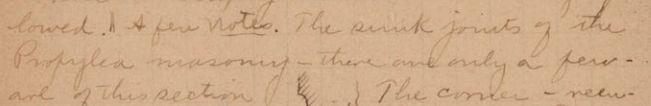 lowed. A few notes. The sunk joints of the
Propylea masonry - there are only a few -
are of this section { } The corner - recu-